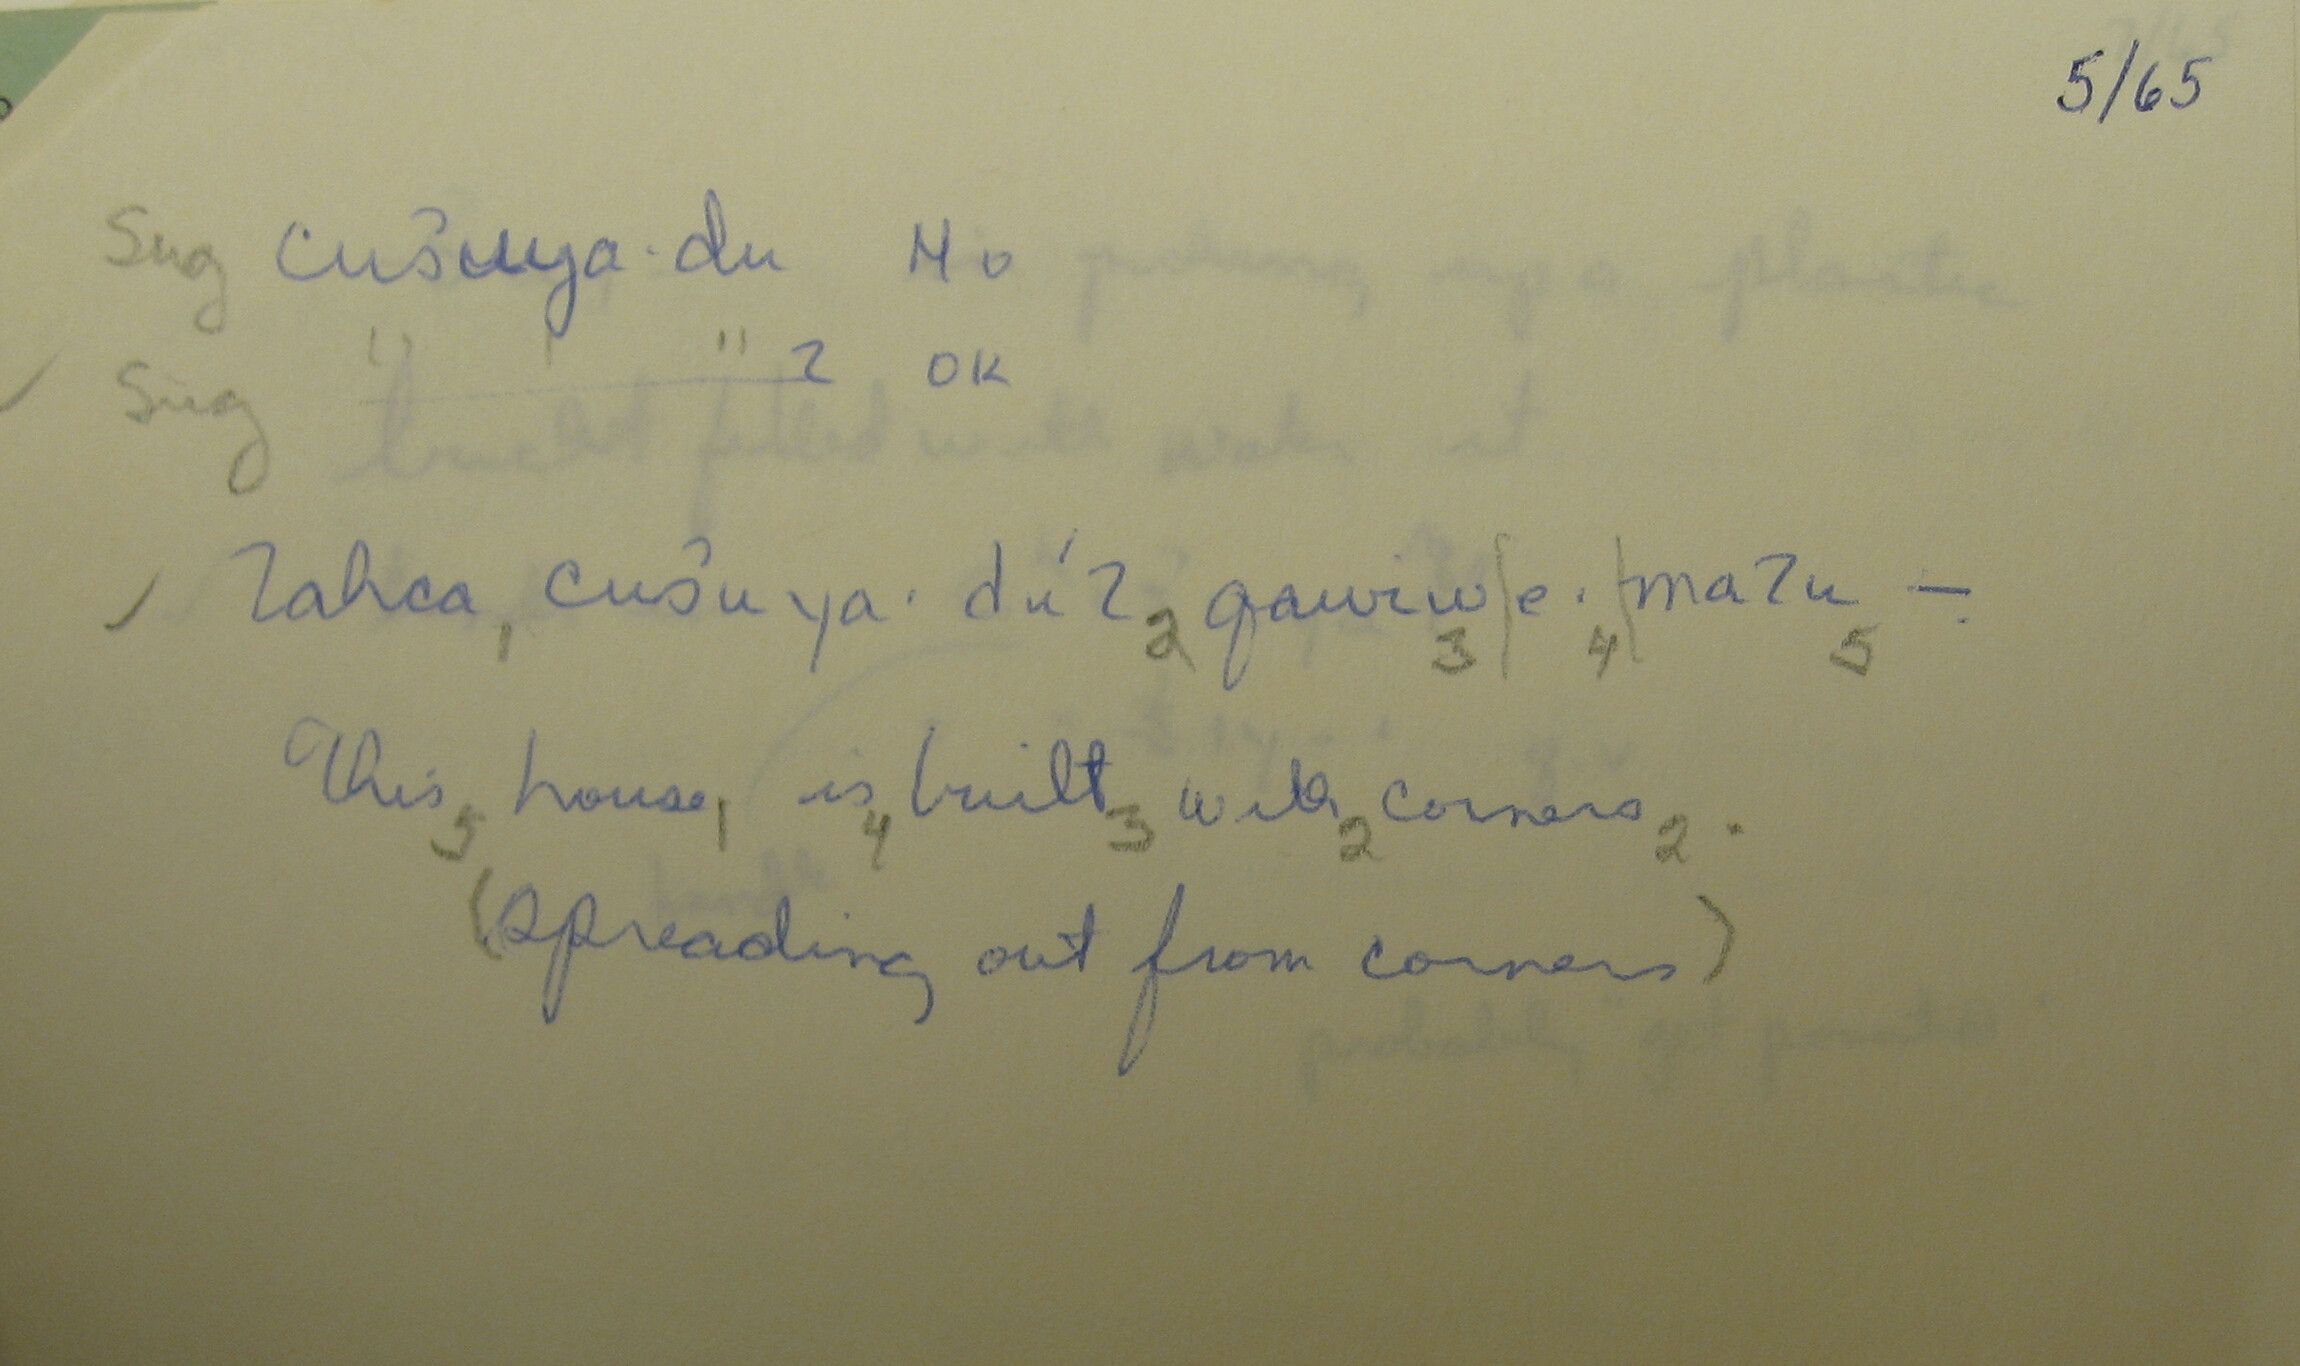 5/65
Sug cušuya·du No
Sug " " ʔ OK
ʔahca₁ cušuya·dúʔ₂ qawiw₃|e·₄|maʔu₅ –.
This₅ house₁ is₄ built₃ with₂ corners₂.
(spreading out from corners)